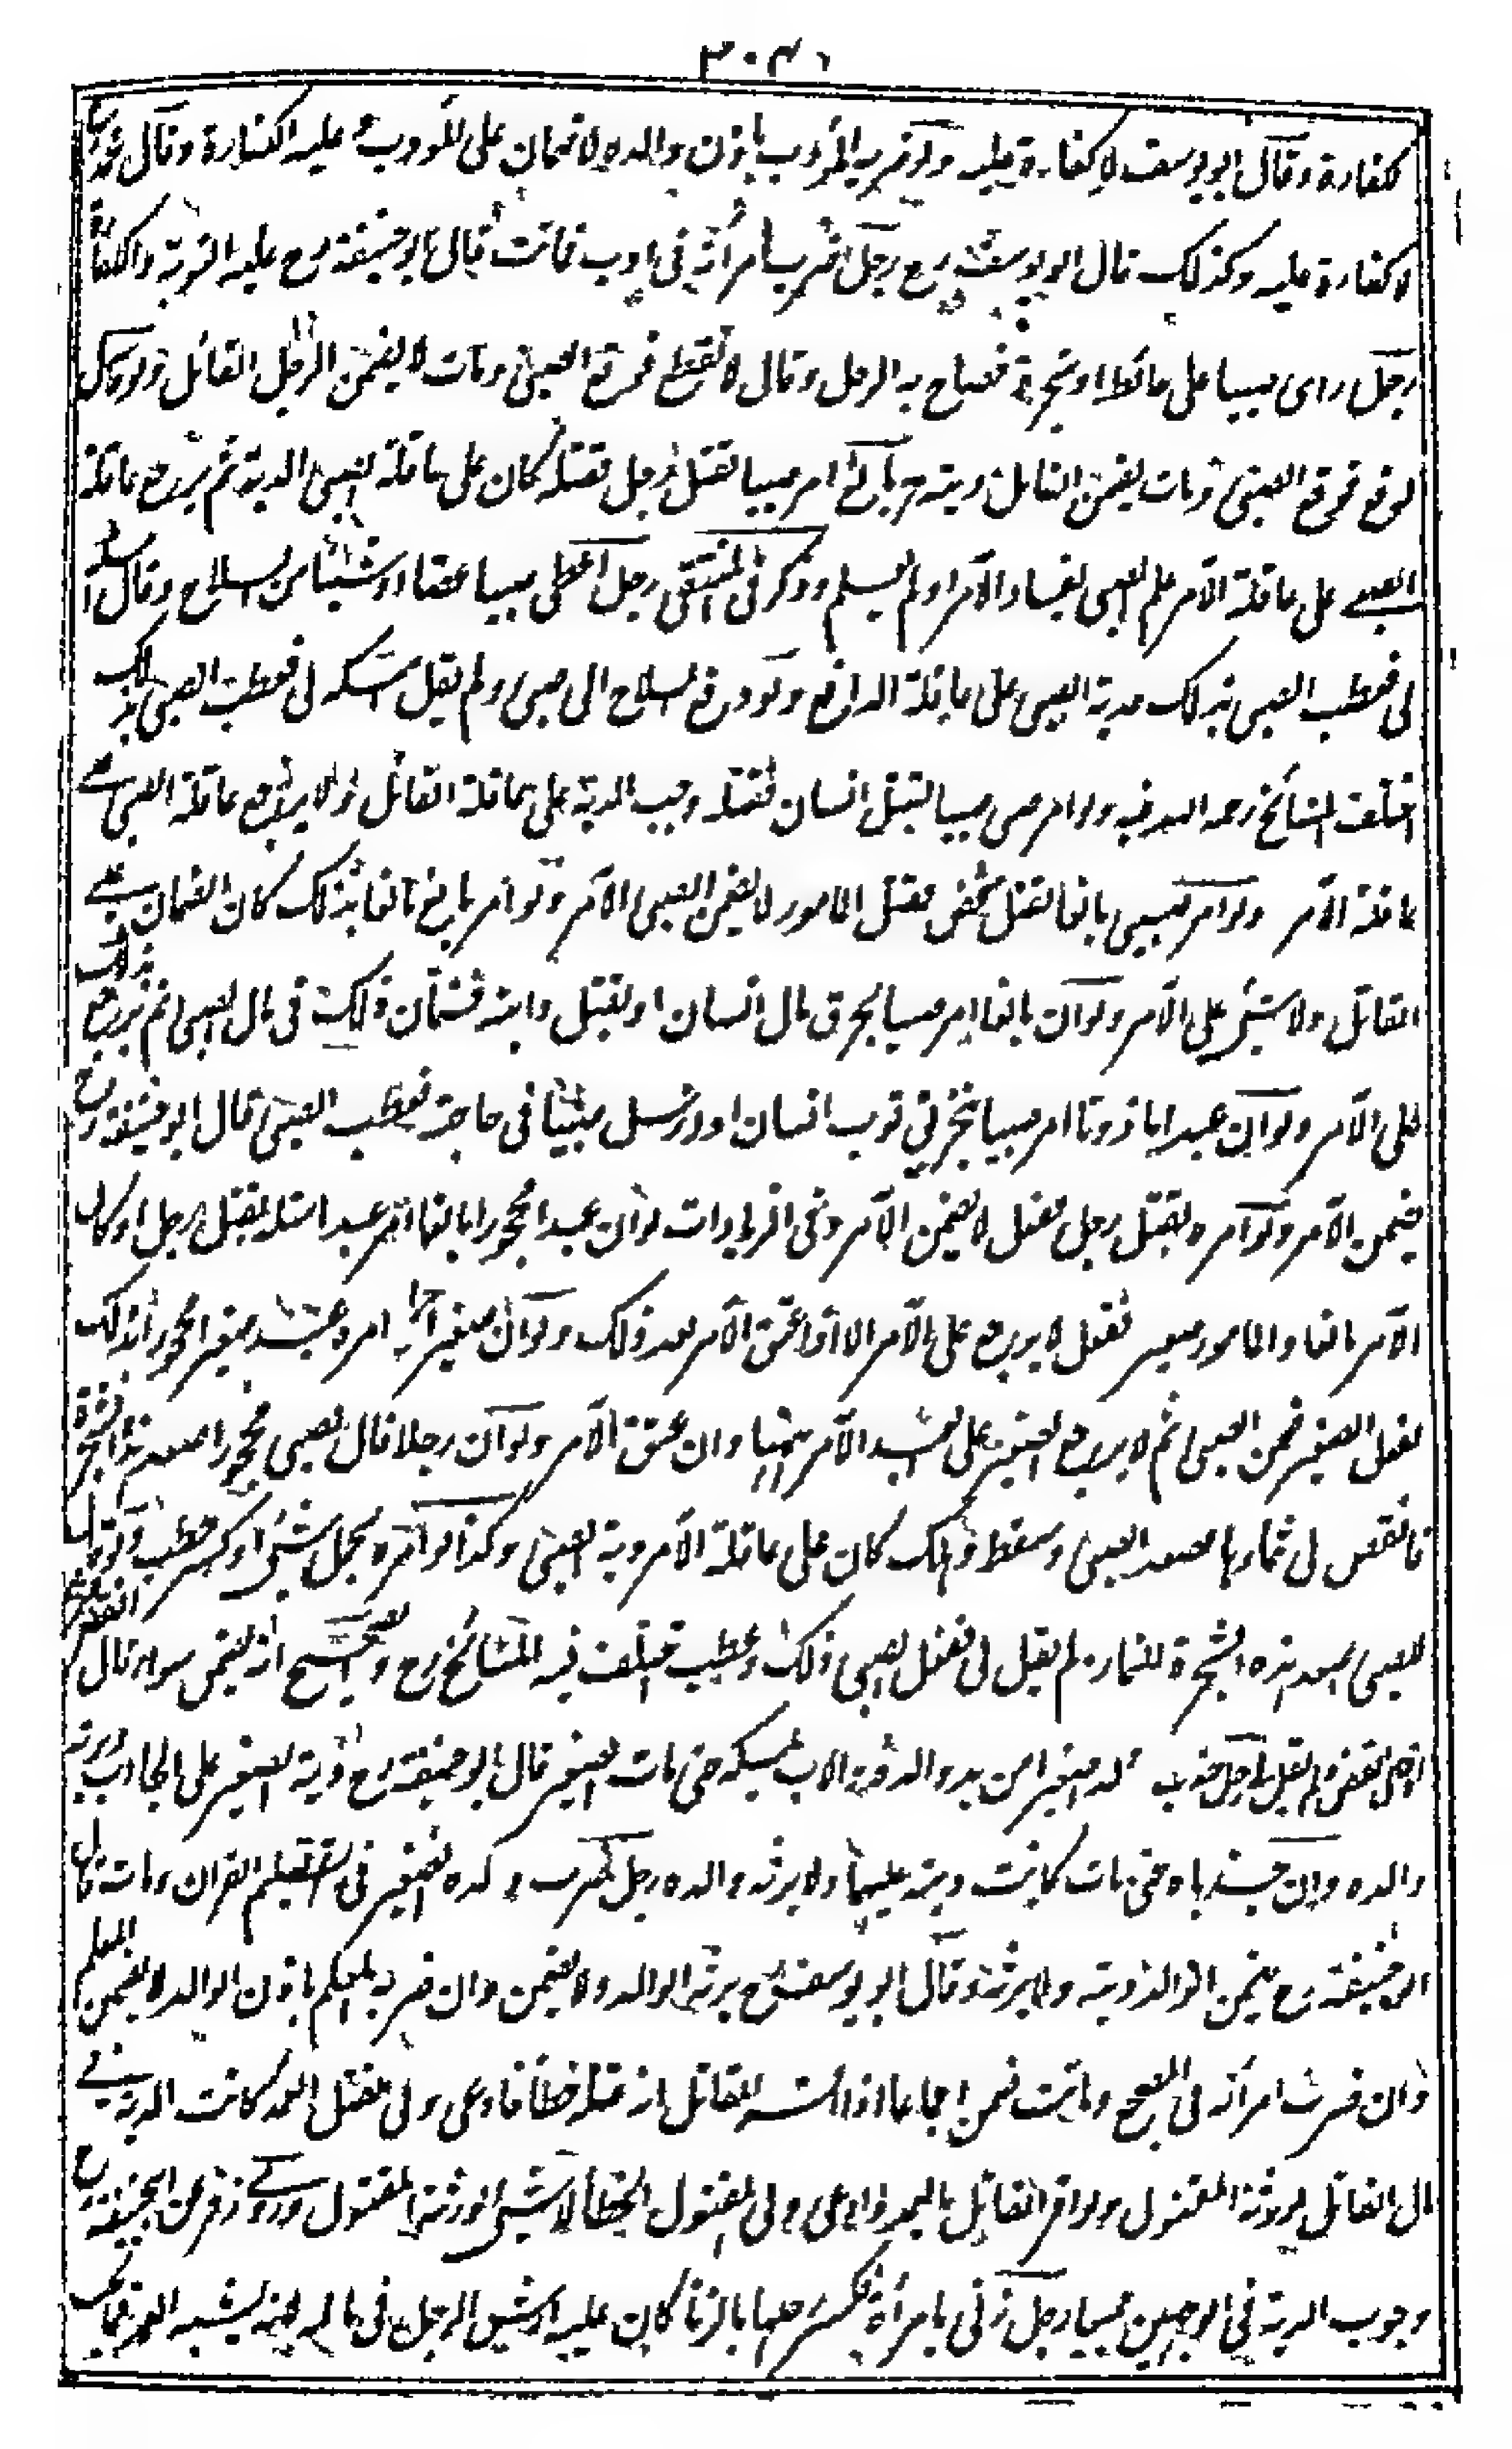 كفارة وقال ابو يوسف لا كفارة عليه ولو ضربه المؤدب باذن والده لا ضمان على المؤدب عليه الكفارة وقال محمد رح
لا كفارة عليه وكذلك قال ابو يوسف رح رجل ضرب امرأته فى ادب فماتت قال ابو حنيفة رح عليه الدية والكفارة
رجل راى صبيا على حائط او شجرة فصاح به الرجل وقال لا تقع فوقع الصبى ومات لا يضمن الرجل القائل ولو قال
لو قع فوقع الصبى ومات يضمن القائل ديته رجل امر صبيا بقتل رجل فقتله كان على عاقلة الصبى الدية ثم يرجع عاقلة
الصبى على عاقلة الآمر علم الصبى بفساد الآمر او لم يعلم وذكر فى المنتقى رجل اعطى صبيا عصا او شيئا من السلاح وقال امسكه
لى فعطب الصبى بذلك فدية الصبى على عاقلة الدافع ولو دفع السلاح الى صبى ولم يقل امسكه لى فعطب الصبى بذلك
اختلف المشائخ رحمه الله فيه ولو امر صبى صبيا بقتل انسان فقتله وجب الدية على عاقلة القاتل ولا يرجع عاقلة الصبى على
عاقلة الآمر ولو امر صبى بالغا بقتل شخص فقتل المامور لا يضمن الصبى الآمر ولو امر بالغ بالغا بذلك كان الضمان على
القاتل ولا شئ على الآمر ولو ان بالغا امر صبيا بحرق مال انسان او بقتل دابته فضمان ذلك فى مال الصبى ثم يرجع بذلك
على الآمر ولو ان عبدا ماذونا امر صبيا بتخريق ثوب انسان او ارسل صبيا فى حاجة فعطب الصبى قال ابو حنيفة رح
يضمن الآمر ولو امره بقتل رجل ففعل لا يضمن الآمر وفى الزيادات لو ان عبدا محجورا بالغا امر عبدا مثله بقتل رجل او كان
الآمر بالغا والمامور صغير ففعل لا يرجع على الآمر الا اذا عتق الآمر بعد ذلك ولو ان صغيرا حرا امره عبد صغير محجور بذلك
ففعل الصغير ضمن الصبى ثم لا يرجع الصغير على العبد الآمر وان عتق الآمر ولو ان رجلا قال لصبى محجور اصعد هذه الشجرة
فانفض لى ثمارها فصعد الصبى وسقط وهلك كان على عاقلة الآمر دية الصبى وكذا لو امره بحمل شئ او كسر حطب ولو قال
للصبى اصعد هذه الشجرة للثمار ولم يقل لى ففعل الصبى ذلك وعطب اختلف فيه المشائخ رح والصحيح انه يضمن سواء قال
انفض لى او انفض ولم يقل لى رجل جذب ولدا صغيرا من يد والده والاب يمسكه حتى مات الصغير قال ابو حنيفة رح دية الصغير على الجاذب ويرثه
والده وان جذباه حتى مات كانت ديته عليهما ولا يرثه والده رجل ضرب ولده الصغير فى تعليم القران ومات قال
ابو حنيفة رح يضمن الوالد ديته ولا يرثه وقال ابو يوسف رح يرثه الوالد ولا يضمن وان ضربه المعلم باذن الوالد لا يضمن المعلم
وان ضرب امرأته فى المضجع وماتت ضمن اجماعا اذا اقر القاتل انه قتله خطأ فادعى ولى القتيل العمد كانت الدية فى
مال القاتل لورثة المقتول ولو اقر القاتل بالعمد وادعى ولى المقتول الخطأ لا شئ لورثة المقتول وروى زفر عن ابى حنيفة رح
وجوب الدية فى الوجهين جميعا رجل زنى بامرأة فكسر رجلها بالزنا كان عليه ارش الرجل فى ماله لانه يشبه العمد قال